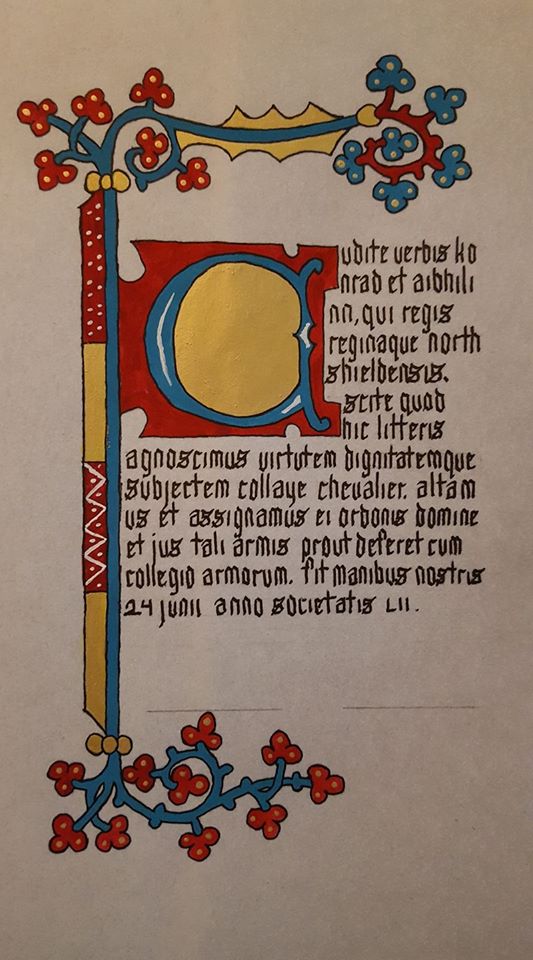 Audite verbis ko
nrad et aibhili
nn, qui regis
reginaque north
shieldensis.
scite quod
hic litteris
agnoscimus virtutem dignitatemque
subjectem collaye chevalier. altam
us et assignamus ei ordonis domine
et jus tali armis prout deferet cum
collegio armorum. fit manibus nostris
24 junii anno societatis LII.